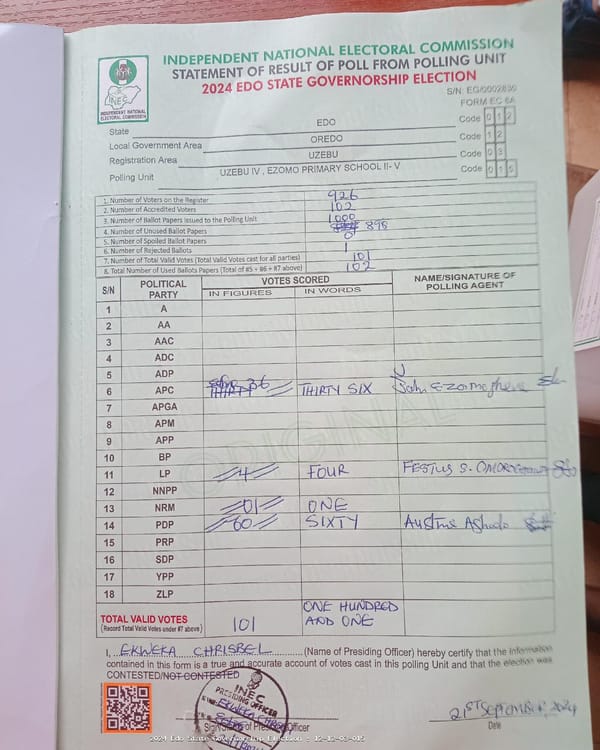 INDEPENDENT NATIONAL ELECTORAL COMMISSION
STATEMENT OF RESULT OF POLL FROM POLLING UNIT
2024 EDO STATE GOVERNORSHIP ELECTION
INEC
INDEPENDENT NATIONAL ELECTORAL COMMISSION
FORM EC 8A
State EDO Code 0 1 2
Local Government Area OREDO Code 1 2
Registration Area UZEBU Code 0 3
Polling Unit UZEBU IV, EZOMO PRIMARY SCHOOL II- V Code 0 1 5
1. Number of Voters on the Register 926
2. Number of Accredited Voters 102
3. Number of Ballot Papers issued to the Polling Unit 1000
4. Number of Unused Ballot Papers 898
5. Number of Spoiled Ballot Papers 0
6. Number of Rejected Ballots 1
7. Number of Total Valid Votes (Total Valid Votes cast for all parties) 101
8. Total Number of Used Ballots Papers (Total of #5 + #6 + #7 above) 102
S/N POLITICAL PARTY VOTES SCORED NAME/SIGNATURE OF POLLING AGENT
IN FIGURES IN WORDS
1 A
2 AA
3 AAC
4 ADC
5 ADP
6 APC 36 THIRTY SIX
7 APGA
8 APM
9 APP
10 BP
11 LP 4 FOUR FESTUS S.
12 NNPP
13 NRM 01 ONE
14 PDP 60 SIXTY
15 PRP
16 SDP
17 YPP
18 ZLP
TOTAL VALID VOTES 101 ONE HUNDRED AND ONE
(Record Total Valid Votes under #7 above)
I, EKWEKA CHRISBEL (Name of Presiding Officer) hereby certify that the information
contained in this form is a true and accurate account of votes cast in this polling Unit and that the election was
CONTESTED/NOT CONTESTED
INEC
PRESIDING OFFICER
Signature of Presiding Officer
21ST SEPTEMBER, 2024
Date
2024 Edo State Governorship Election - 12-12-03-015